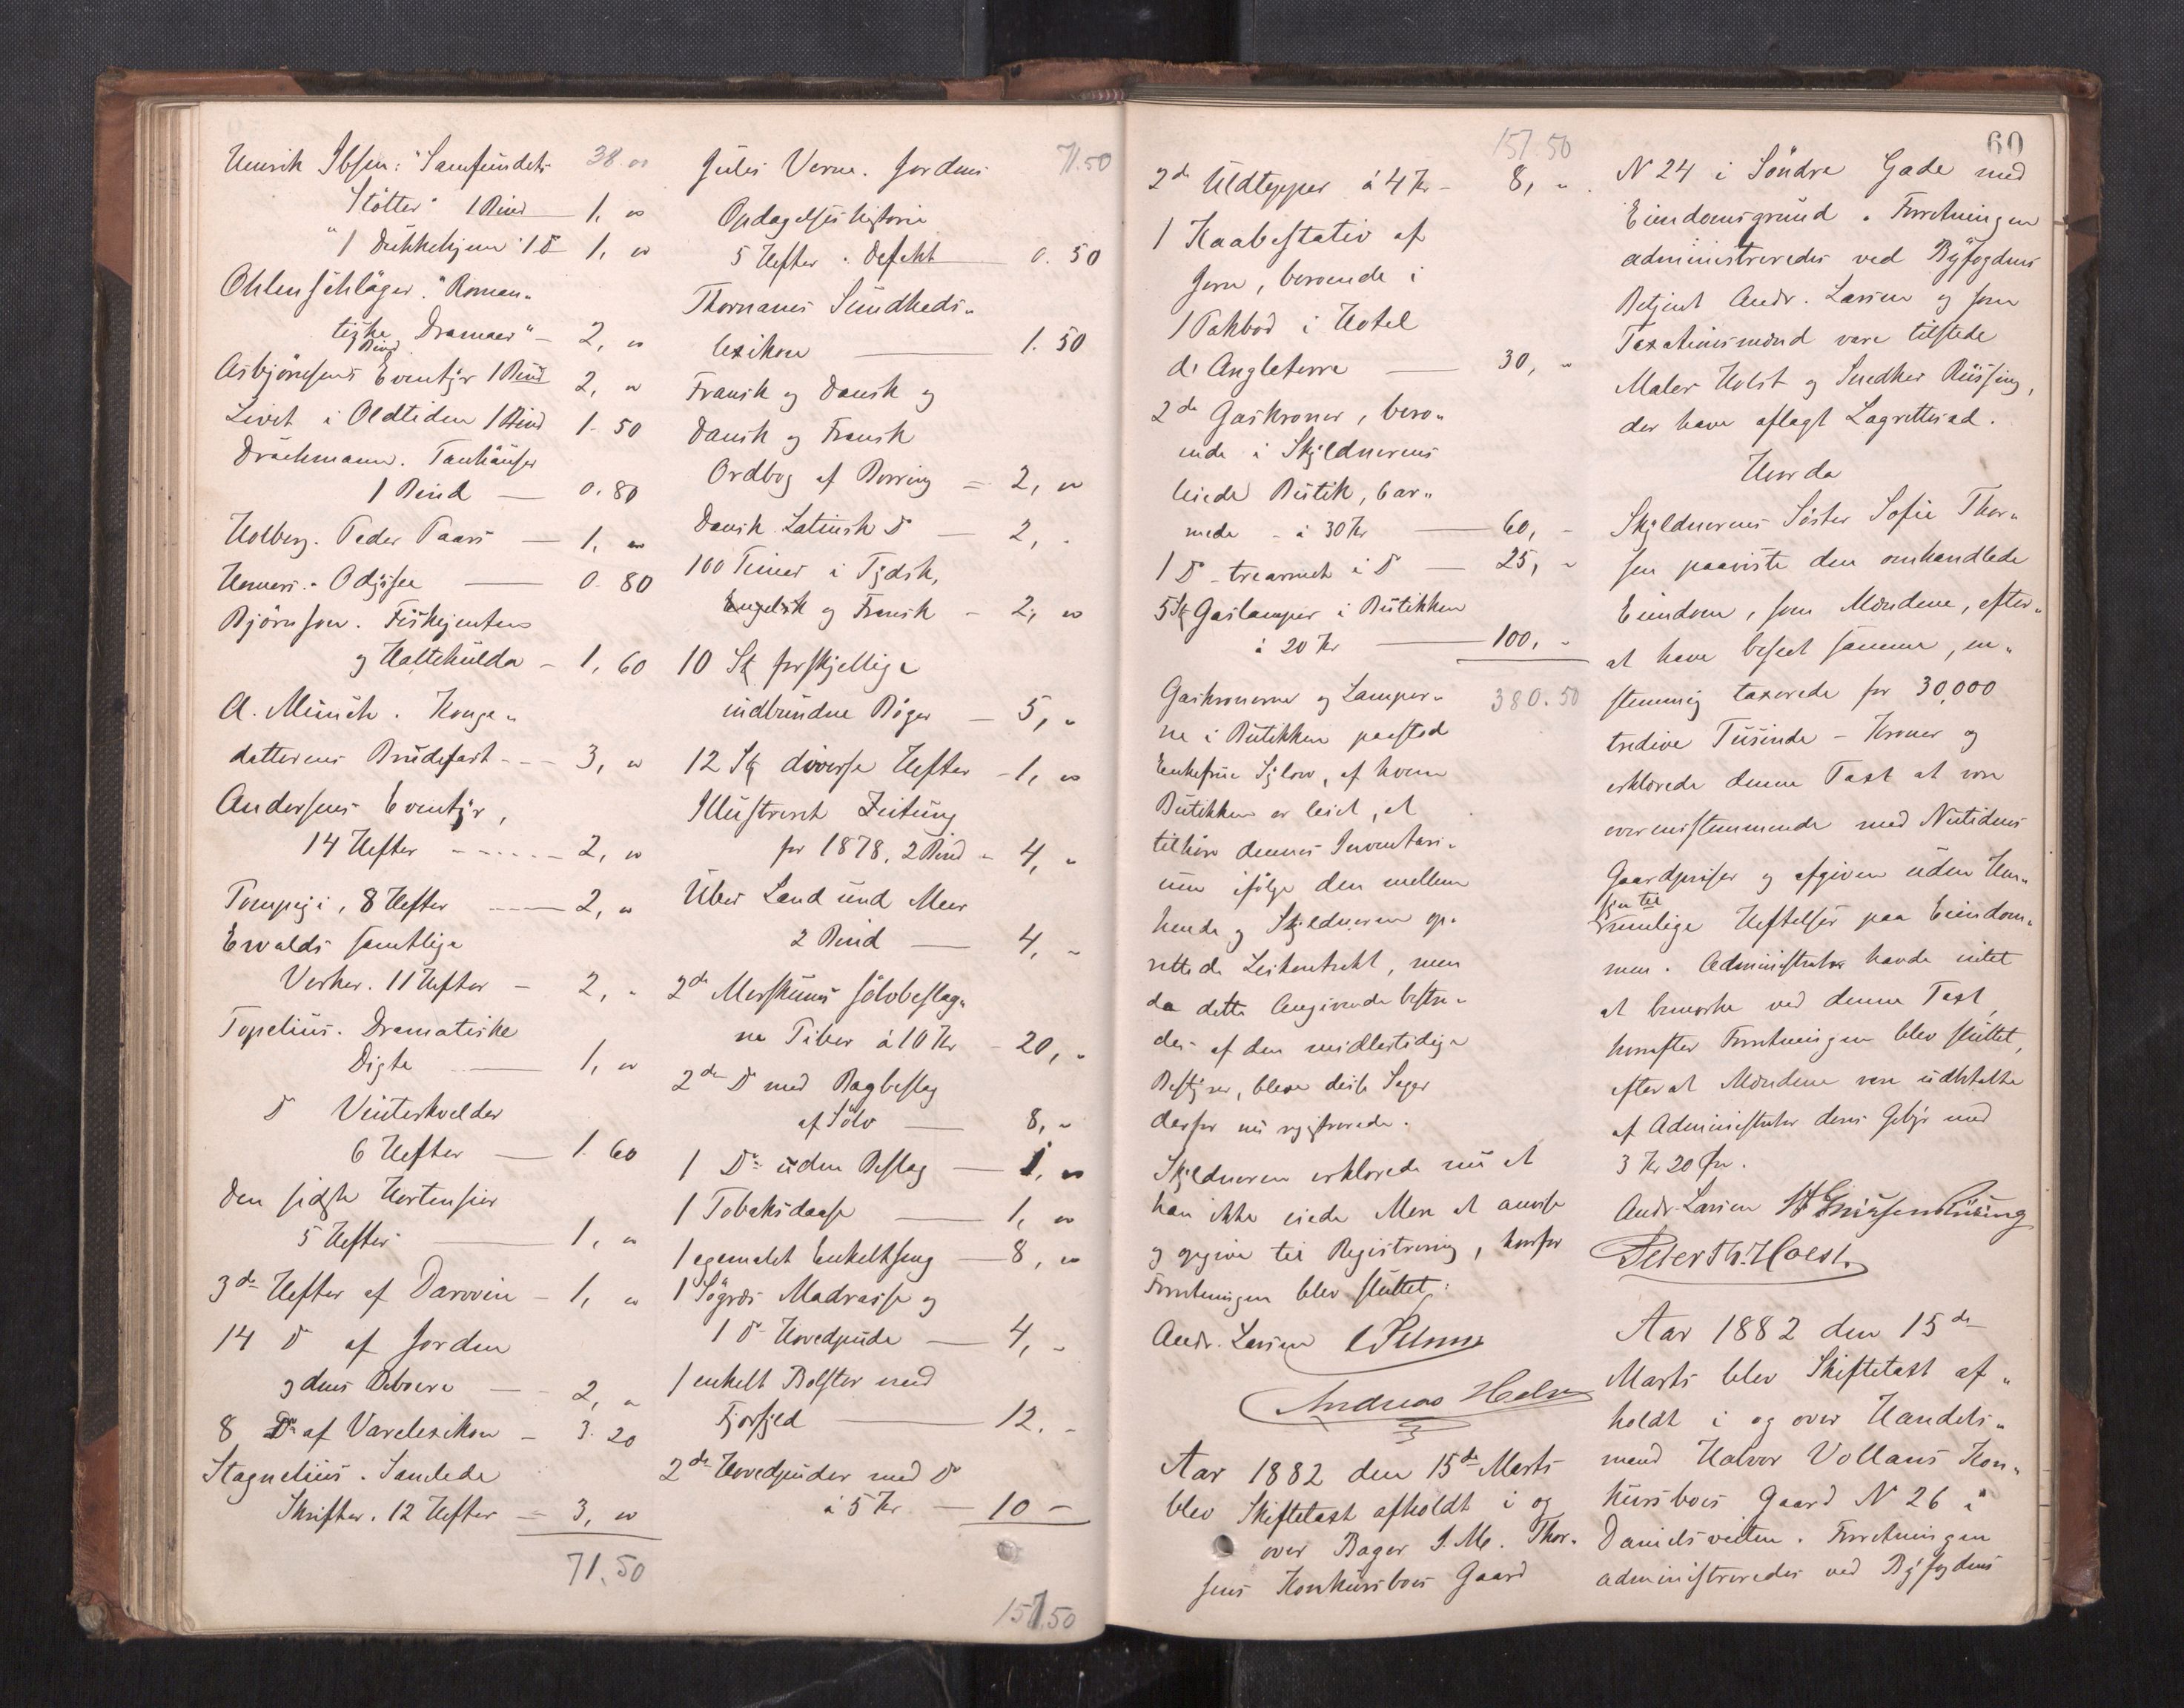 Henrik Ibsen: "Samfundets 38.00
Støtter" 1 Bind — 1, "
"1 Dukkehjem" 1 D — 1, "
Ohlenschläger. "Roman-
tiske Dramaer" — 2, "
1 Bind
Asbjørnsens Eventyr 1 Bind 2, "
Livet i Oldtiden 1 Bind 1. 50
Drachmann. Tanhäuser
1 Bind — 0. 80
Holberg. Peder Paars — 1, "
Homers. Odysse — 0. 80
Bjørnson. Fiskejenten
og Haltehulda — 1, 60
A. Munch. Konge-
datterens Brudefart — 3, "
Andersens Eventyr,
14 Hefter — 2, "
Pompeji, 8 Hefter — 2, "
Ewalds samtlige
Verker. 11 Hefter — 2, "
Topelius. Dramatiske
Digte — 1, "
D Vinterkvelder
6 Hefter — 1. 60
Den sidste Hortensier
5 Hefter — 1, "
3de Hefter af Darwin — 1, "
14 D af Jorden
og dens Beboere — 2, "
8 Do af Varelexikon — 3. 20
Stagnelius. Samlede
Skrifter. 12 Hefter — 3, "
71.50
Jules Verne. Jordens 71.50
Opdagelseshistorie
5 Hefter. Defekt — 0. 50
Thornams Sundheds-
lexikon — 1. 50
Fransk og Dansk og
Dansk og Fransk
Ordbog af Borring — 2, "
Dansk Latinsk D — 2, "
100 Timer i Tydsk,
Engelsk og Fransk — 2, "
10 St forskjellige
indbundne Bøger — 5, "
12 St diverse Hefter — 1, "
Illustreret Zeitung
for 1878, 2 Bind — 4, "
Über Land und Meer
2 Bind — 4, "
2de Merskums sølvbeslag-
ne Piber á 10 Kr — 20, "
2de D med Bagbeslag
af Sølv — 8, "
1 Do uden Beslag — 1, "
1 Tobaksdaase — 1, "
1 egemalet Enkeltseng — 8, "
1 Søgræs Madrasse og
1 D Hovedpude — 4, "
1 enkelt Bolster med
Fjørfyld — 12. "
2de Hovedpuder med D
á 5 Kr — 10 "
151.50
151 50
2de Uldtepper á 4 Kr — 8, "
1 Kaabestativ af
Jern, beroende i
1 Pakbod i Hotel
d'Angleterre — 30, "
2de Gaskroner, bero-
ende i Skyldnerens
leiede Butik, 6 ar-
mede – á 30 Kr — 60, "
1 D – trearmet i D — 25, "
5 St Gaslamper i Butikken
á 20 Kr — 100, "
Gaskronerne og Lamper- 380.50
ne i Butikken paastod
Enkefrue Sylow, af hvem
Butikken er leiet, at
tilhøre dennes Inventari-
um ifølge den mellem
hende og Skyldneren op-
rettede Leiekontrakt, men
da dette Angivende bestri-
des af den midlertidige
Bestyrer, bleve disse Sager
derfor nu registrerede.
Skyldneren erklærede nu at
han ikke eiede Mere at anvise
og opgive til Registrering, hvorfor
Forretningen blev sluttet:
Andr. Larsen
Andreas
Aar 1882 den 15de Marts
blev Skiftetaxt afholdt i og
over Bager J. M. Thor-
sens Konkursboes Gaard
60
N 24 i Söndre Gade med
Eiendomsgrund. Forretningen
administreredes ved Byfogdens
Betjent Andr. Larsen og som
Taxationsmænd vare tilstede
Maler Holst og Snedker Büssing,
der have aflagt Lagrettesed.
Hvorda
Skyldnerens Søster Sofie Thor-
sen paaviste den omhandlede
Eiendom, som Mændene, efter
at have beseet samme, en-
stemmig taxerede for 30,000
tredive Tusinde – Kroner og
erklærede denne Taxt at være
overensstemmende med Nutidens
Gaardpriser og afgiven uden Hen-
syn til
mulige Heftelser paa Eiendom-
men. Administrator havde intet
at bemærke ved denne Taxt,
hvorefter Forretningen blev sluttet,
efterat Mændene vare udbetalte
af Administrator deres Gebyr med
3 Kr 20 Øre.
Andr. Larsen
Peter Th. Holst.
Aar 1882 den 15de
Marts blev Skiftetaxt af-
holdt i og over Handels-
mand Halvor Vollans Kon-
kursboes Gaard N 26 i
Danielsveiten. Forretningen
administreredes ved Byfogdens